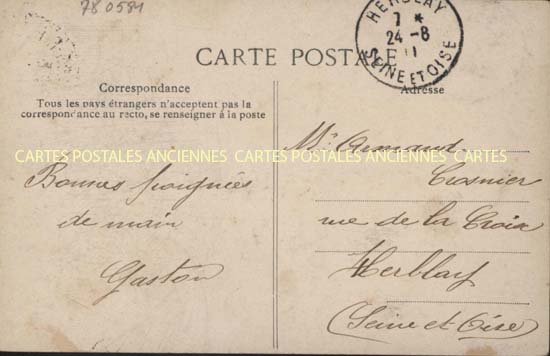 780584
HERBLAY
7 *
24 -8
11
SEINE ET OISE
CARTE POSTALE
Correspondance
Tous les pays étrangers n'acceptent pas la
correspondance au recto, se renseigner à la poste
Adresse
CARTES POSTALES ANCIENNES CARTES POSTALES ANCIENNES CARTES
Bonnes poignées
de main
Gaston
Mr Armand
Crosnier
rue de la Croix
Herblay
(Seine et Oise